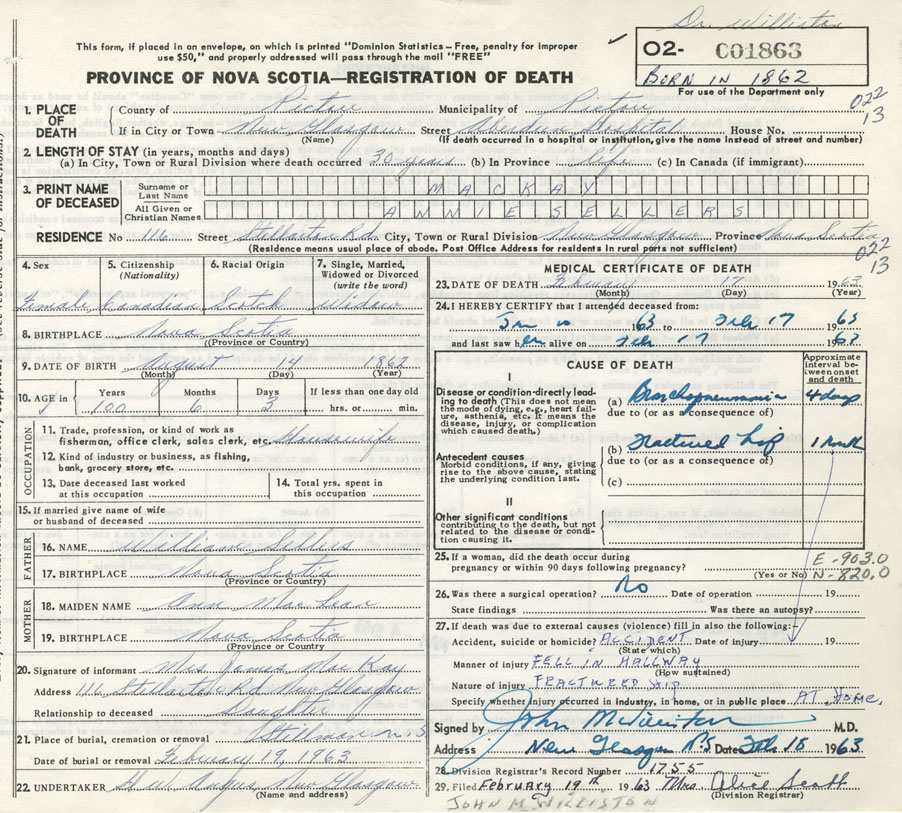 Dr. Williston
This form, if placed in an envelope, on which is printed "Dominion Statistics – Free, penalty for improper
use $50," and properly addressed will pass through the mail "FREE"
PROVINCE OF NOVA SCOTIA—REGISTRATION OF DEATH
02- C01863
BORN IN 1862
For use of the Department only
022
13
1. PLACE OF DEATH County of Pictou Municipality of Pictou
If in City or Town New Glasgow Street Aberdeen Hospital House No.
(Name) (If death occurred in a hospital or institution, give the name instead of street and number)
2. LENGTH OF STAY (in years, months and days)
(a) In City, Town or Rural Division where death occurred 30 years (b) In Province Life (c) In Canada (if immigrant)
3. PRINT NAME OF DECEASED
Surname or Last Name MACKAY
All Given or Christian Names ANNIE SELLERS
RESIDENCE No 116 Street Stellarton Rd. City, Town or Rural Division New Glasgow Province Nova Scotia
(Residence means usual place of abode. Post Office Address for residents in rural parts not sufficient)
022
13
4. Sex
Female
5. Citizenship
(Nationality)
Canadian
6. Racial Origin
Scotch
7. Single, Married, Widowed or Divorced
(write the word)
Widow
8. BIRTHPLACE Nova Scotia
(Province or Country)
9. DATE OF BIRTH August 14 1862
(Month) (Day) (Year)
10. AGE in Years Months Days If less than one day old
100 6 3 hrs. or min.
OCCUPATION
11. Trade, profession, or kind of work as
fisherman, office clerk, sales clerk, etc. Housewife
12. Kind of industry or business, as fishing,
bank, grocery store, etc.
13. Date deceased last worked at this occupation
14. Total yrs. spent in this occupation
15. If married give name of wife
or husband of deceased
FATHER
16. NAME William Sellers
17. BIRTHPLACE Nova Scotia
(Province or Country)
MOTHER
18. MAIDEN NAME Ann MacLean
19. BIRTHPLACE Nova Scotia
(Province or Country)
20. Signature of informant Mrs James MacKay
Address 116 Stellarton Rd New Glasgow
Relationship to deceased Daughter
21. Place of burial, cremation or removal N.S
Date of burial or removal February 19, 1963
22. UNDERTAKER H W Angus New Glasgow
(Name and address)
MEDICAL CERTIFICATE OF DEATH
23. DATE OF DEATH February 17 1963
(Month) (Day) (Year)
24. I HEREBY CERTIFY that I attended deceased from:
Jan 10 1963 to Feb 17 1963
and last saw her alive on Feb 17 1963
CAUSE OF DEATH
Approximate interval between onset and death
I
Disease or condition directly leading to death (This does not mean the mode of dying, e.g., heart failure, asthenia, etc. It means the disease, injury, or complication which caused death.)
(a) Bronchopneumonia 4 days
due to (or as a consequence of)
Antecedent causes
Morbid conditions, if any, giving rise to the above cause, stating the underlying condition last.
(b) Fractured hip 1 month
due to (or as a consequence of)
(c)
II
Other significant conditions
contributing to the death, but not related to the disease or condition causing it.
25. If a woman, did the death occur during
pregnancy or within 90 days following pregnancy?
(Yes or No)
E-903.0
N-820.0
26. Was there a surgical operation? No Date of operation 19
State findings Was there an autopsy?
27. If death was due to external causes (violence) fill in also the following:-
Accident, suicide or homicide? ACCIDENT Date of injury 19
(State which)
Manner of injury FELL IN HALLWAY
(How sustained)
Nature of injury FRACTURED HIP
Specify whether injury occurred in industry, in home, or in public place AT HOME.
Signed by John M Williston M.D.
Address New Glasgow N.S Date Feb 18 1963
28. Division Registrar's Record Number 1755
29. Filed February 19th 1963 Mrs Alice Scott
(Division Registrar)
JOHN M. WILLISTON